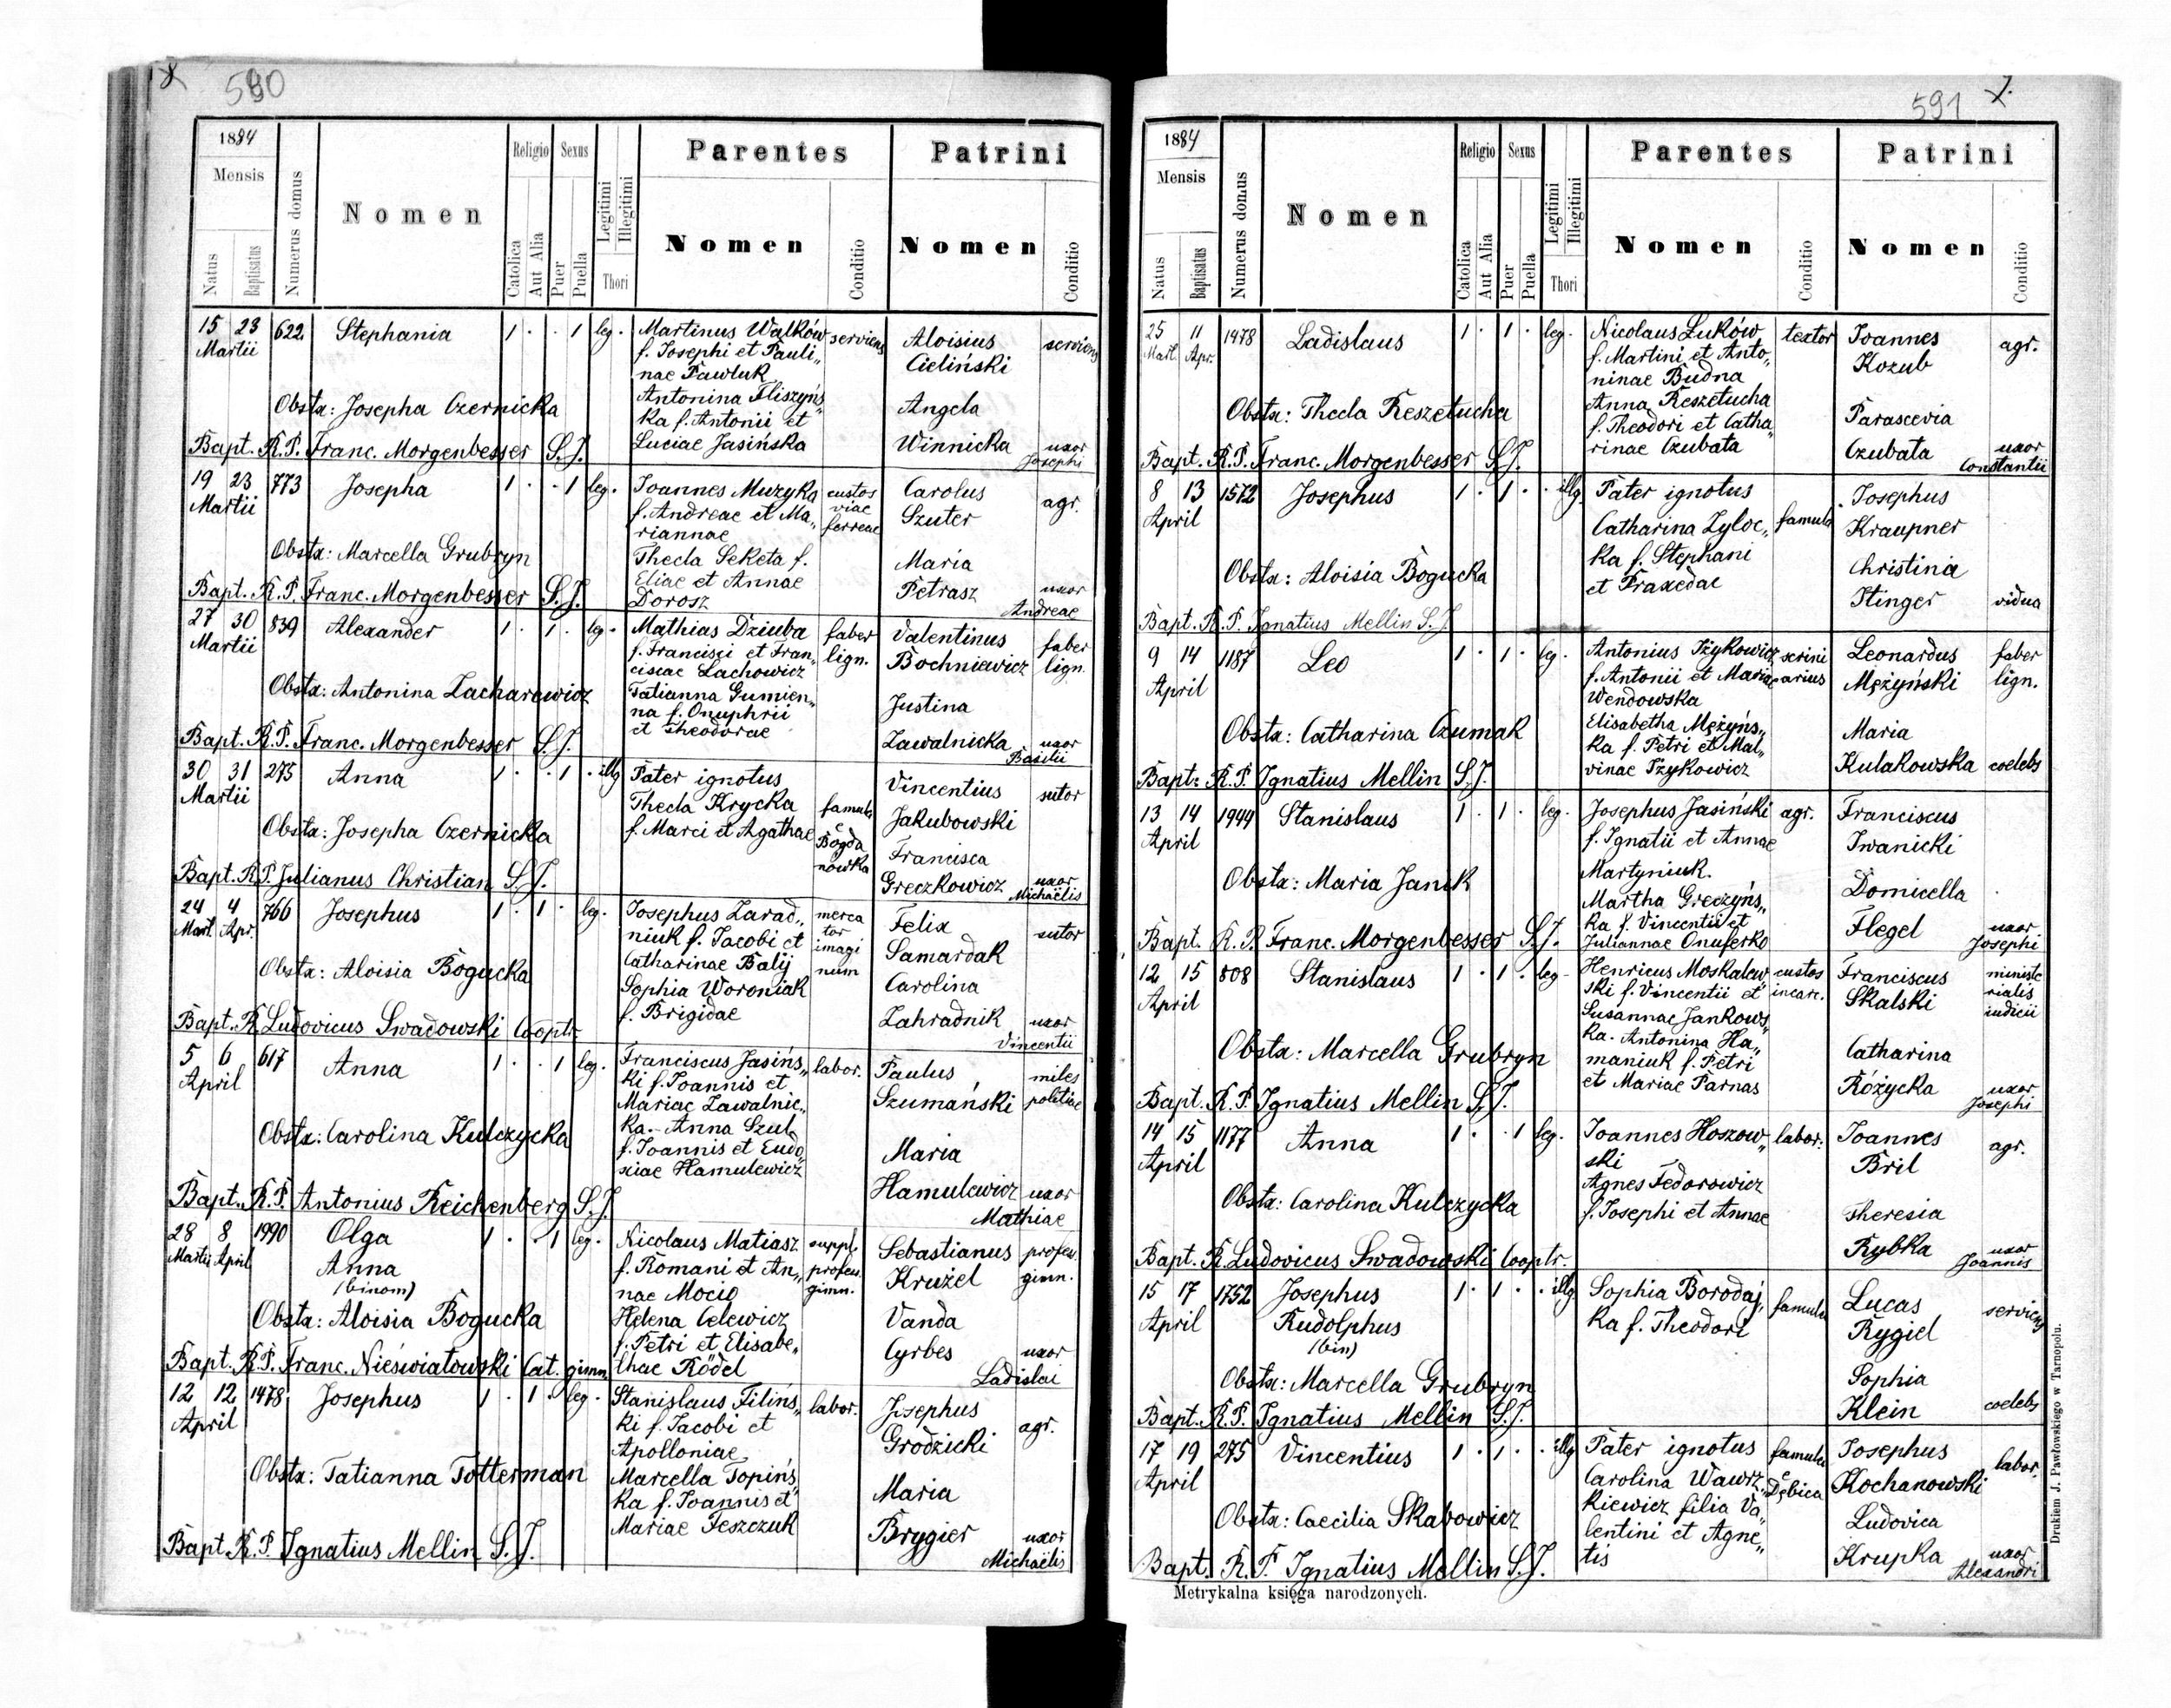 590
1884
Mensis
Natus
Baptisatus
Numerus domus
Nomen
Religio
Catolica
Aut Alia
Sexus
Puer
Puella
Legitimi
Illegitimi
Thori
Parentes
Nomen
Conditio
Patrini
Nomen
Conditio
15 23 622 Stephania 1 . . 1 leg. Martinus Walków serviens Aloisius serviens
Martii f. Josephi et Pauli„ Cieliński
nae Pawluk
Obstx: Josepha Czernicka Antonina Fliszyńs„ Angela
ka f. Antonii et
Bapt. R.P. Franc. Morgenbesser S.J. Luciae Jasińska Winnicka uxor Josephi
19 23 773 Josepha 1 . . 1 leg. Joannes Muzyka custos Carolus agr.
Martii f. Andreae et Ma„ viae Szuter
riannae ferreae
Obstx: Marcella Grubryn Thecla Seketa f. Maria
Eliae et Annae
Bapt. R.P. Franc. Morgenbesser S.J. Dorosz Petrasz uxor Andreae
27 30 839 Alexander 1 . 1 . leg. Mathias Dziuba faber Valentinus faber
Martii f. Francisci et Fran„ lign. Bochniewicz lign.
ciscae Lachowicz
Obstx: Antonina Zacharewicz Tatianna Gumien„ Justina
na f. Onuphrii
Bapt. R.P. Franc. Morgenbesser S.J. et Theodorae Zawalnicka uxor Basilii
30 31 275 Anna 1 . . 1 . illg Pater ignotus Vincentius sutor
Martii Thecla Krycka famula Jakubowski
Obstx: Josepha Czernicka f. Marci et Agathae e Bogda
nówka Francisca
Bapt. R.P. Julianus Christian S.J. Greczkowicz uxor Michaëlis
24 4 766 Josephus 1 . 1 . leg. Josephus Zarad„ merca Felix sutor
Mart. Apr. niuk f. Jacobi et tor imagi Samardak
Obstx: Aloisia Bogucka Catharinae Balij num Carolina
Sophia Woroniak
Bapt. R. Ludovicus Swadowski Cooptr. f. Brigidae Zahradnik uxor Vincentii
5 6 617 Anna 1 . . 1 leg. Franciscus Jasińs„ labor. Paulus miles
April ki f. Joannis et Szumański politiae
Mariae Zawalnic„
Obstx: Carolina Kulczycka ka. Anna Szul
f. Joannis et Eudo„ Maria
xiae Hamulewicz
Bapt. R.P. Antonius Reichenberg S.J. Hamulewicz uxor Mathiae
28 8 1990 Olga 1 . . 1 leg. Nicolaus Matiasz suppl. Sebastianus profes.
Martii April Anna f. Romani et An„ profes. Krużel gimn.
(binom) nae Mocio gimn.
Obstx: Aloisia Bogucka Helena Celewicz Vanda
f. Petri et Elisabe„
Bapt. R.P. Franc. Nieświatowski Cat. gimn. thae Rödel Cyrbes uxor Ladislai
12 12 1478 Josephus 1 . 1 . leg. Stanislaus Filińs„ labor. Josephus agr.
April ki f. Jacobi et Grodzicki
Apolloniae
Obstx: Tatianna Totterman Marcella Topińs„ Maria
ka f. Joannis et
Mariae Feszczuk
Bapt. R.P. Ignatius Mellin S.J. Brygier uxor Michaëlis
591
1884
Mensis
Natus
Baptisatus
Numerus domus
Nomen
Religio
Catolica
Aut Alia
Sexus
Puer
Puella
Legitimi
Illegitimi
Thori
Parentes
Nomen
Conditio
Patrini
Nomen
Conditio
25 11 1478 Ladislaus 1 . 1 . leg. Nicolaus Łuków textor Joannes agr.
Mart. Apr. f. Martini et Anto„ Kozub
ninae Budna
Obstx: Thecla Reszetucha Anna Reszetucha Parascevia
f. Theodori et Catha„
Bapt. R.P. Franc. Morgenbesser S.J. rinae Czubata Czubata uxor Constantii
8 13 1572 Josephus 1 . 1 . . illg. Pater ignotus Josephus
April Catharina Zyloc„ famula Kraupner
Obstx: Aloisia Bogucka ka f. Stephani Christina
et Praxedae Stinger vidua
Bapt. R.P. Ignatius Mellin S.J.
9 14 1187 Leo 1 . 1 . leg. Antonius Iżykowicz scrini Leonardus faber
April f. Antonii et Mariae arius Mężyński lign.
Wendowska
Obstx: Catharina Czumak Elisabetha Mężyńs„ Maria
ka f. Petri et Mal„
Bapt: R.P. Ignatius Mellin S.J. vinae Iżykowicz Kulakowska coelebs
13 14 1944 Stanislaus 1 . 1 . leg. Josephus Jasiński agr. Franciscus
April f. Ignatii et Annae Iwanicki
Obstx: Maria Janik Martyniuk. Domicella
Martha Greczyńs„
ka f. Vincentii et
Bapt. R.P. Franc. Morgenbesser S.J. Juliannae Onuferko Flegel uxor Josephi
12 15 808 Stanislaus 1 . 1 . leg. Henricus Moskalew„ custos Franciscus ministe
April ski f. Vincentii et incarc. Skalski rialis
Susannae Jankows„ iudicii
Obstx: Marcella Grubryn ka. Antonina Ha„ Catharina
maniuk f. Petri
Bapt. R.P. Ignatius Mellin S.J. et Mariae Parnas Różycka uxor Josephi
14 15 1177 Anna 1 . . 1 leg. Joannes Hoszow„ labor. Joannes agr.
April ski Bril
Obstx: Carolina Kulczycka Agnes Fedorowicz Theresia
f. Josephi et Annae
Bapt. R. Ludovicus Swadowski Cooptr. Rybka uxor Joannis
15 17 1752 Josephus 1 . 1 . . illg. Sophia Borodaj„ famula Lucas serviens
April Rudolphus ka f. Theodori Rygiel
(bin)
Obstx: Marcella Grubryn Sophia
Bapt. R.P. Ignatius Mellin S.J. Klein coelebs
17 19 275 Vincentius 1 . 1 . . illg Pater ignotus famula Josephus labor.
April Carolina Wawrz„ e Dębica Kochanowski
Obstx: Caecilia Skabowicz kiewicz filia Va„ Ludovica
lentini et Agne„
Bapt. R.P. Ignatius Mellin S.J. tis Krupka uxor Alexandri
Metrykalna księga narodzonych.
Drukiem J. Pawłowskiego w Tarnopolu.